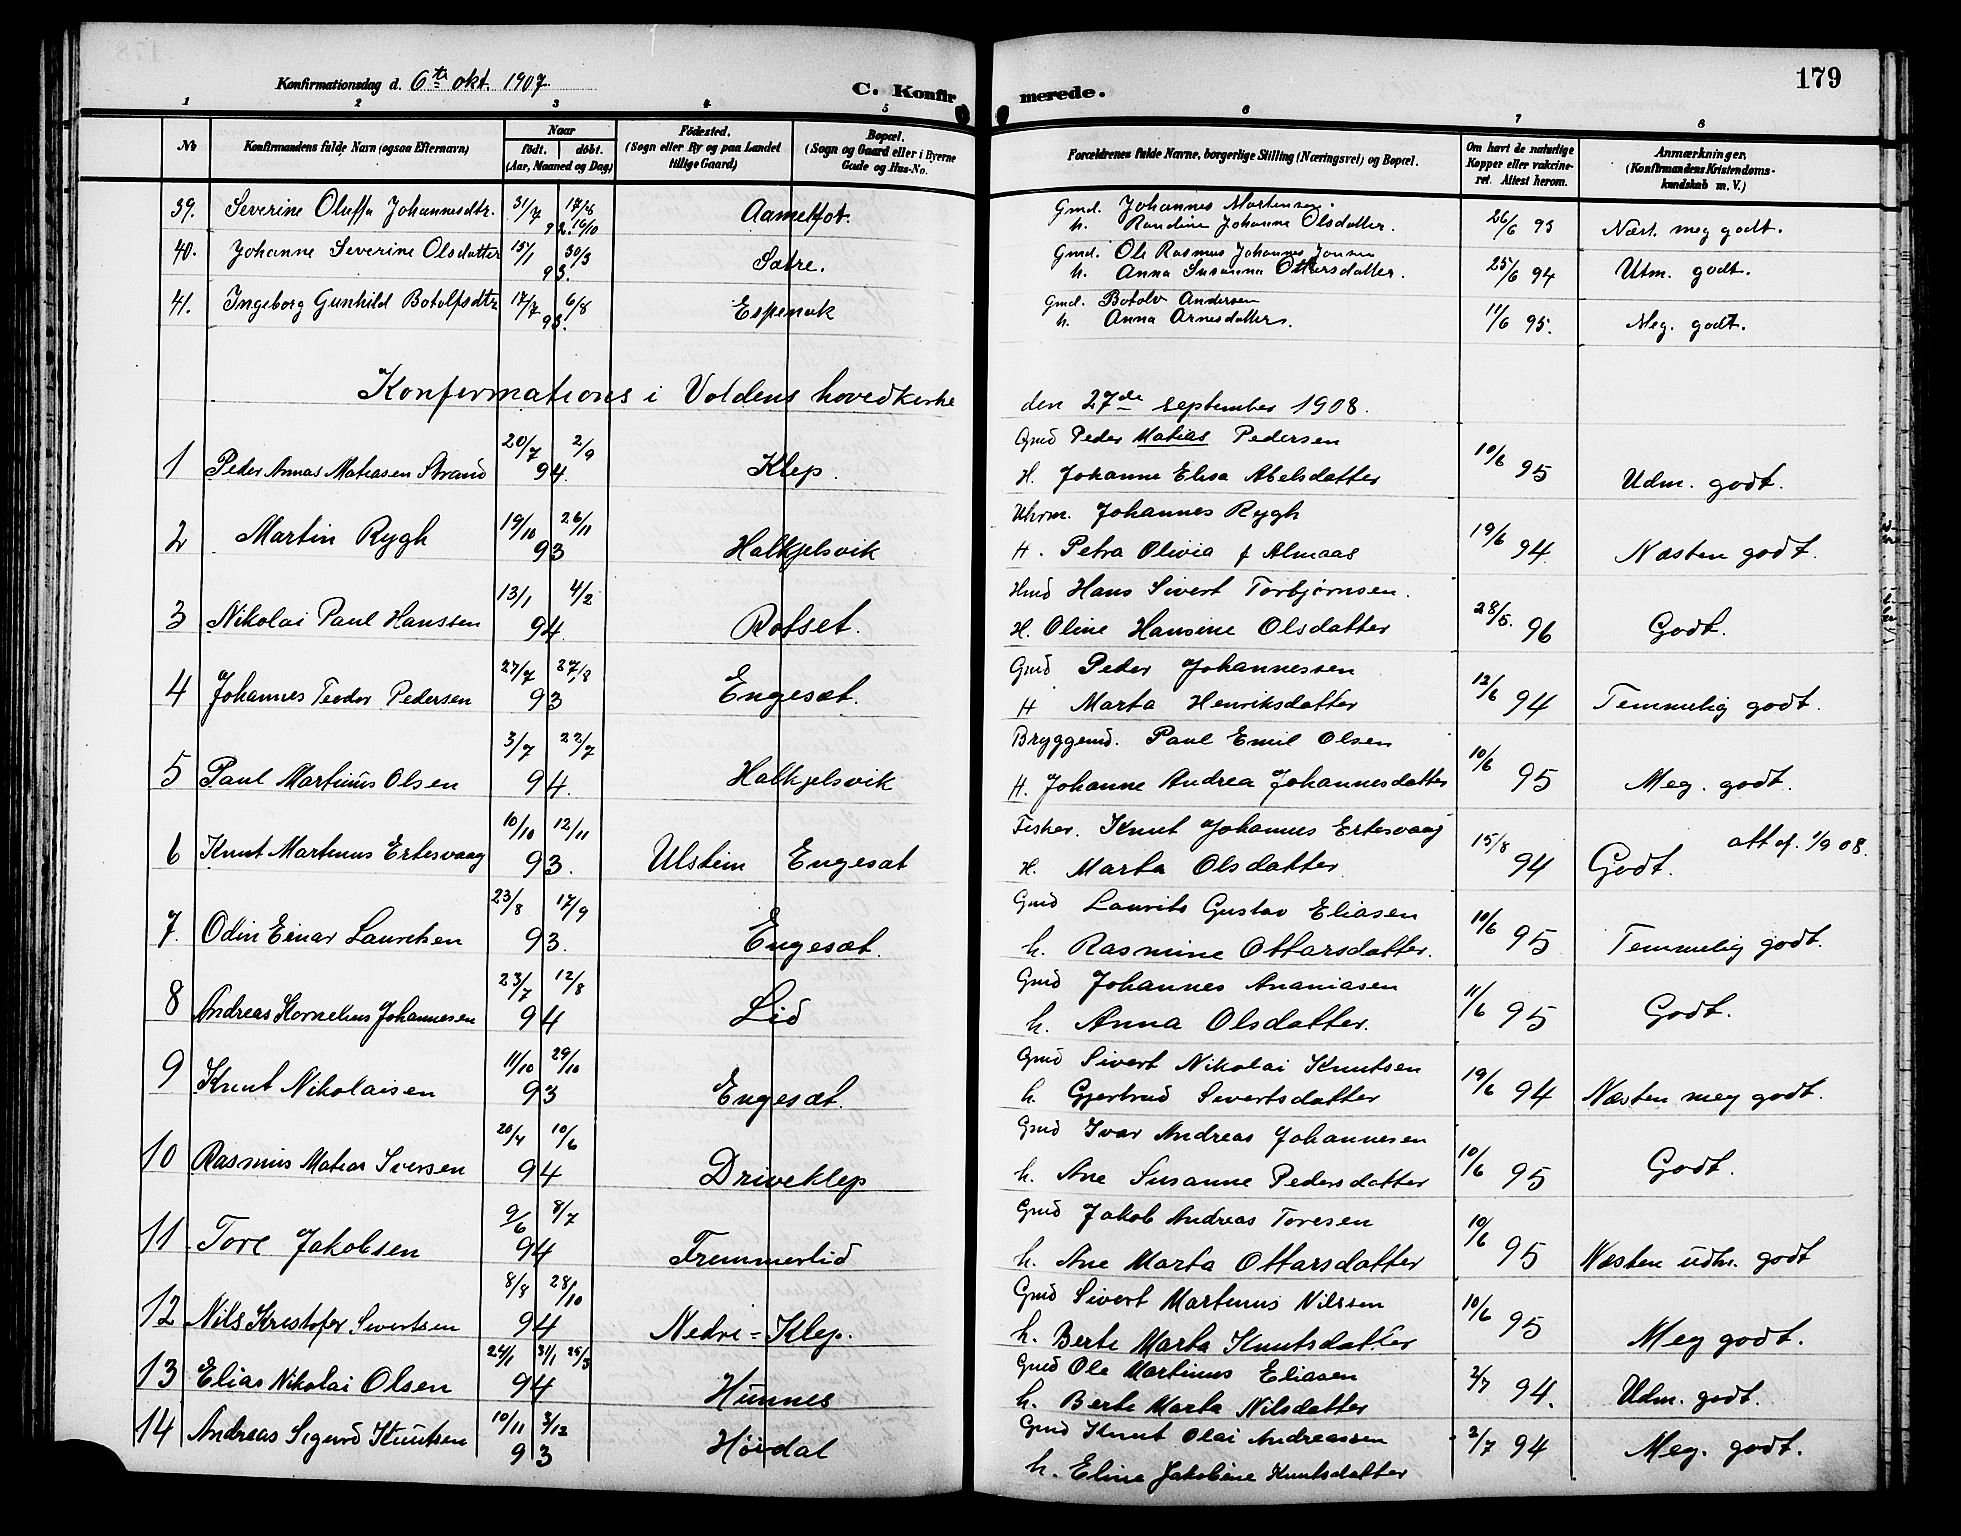 179
Konfirmationsdag d. 6te okt. 1907
C. Konfirmerede.
1 2 3 4 5 6 7 8
No
Konfirmandens fulde Navn (ogsaa Efternavn)
Naar
født. døbt.
(Aar, Maaned og Dag)
Fødested.
(Sogn eller By og paa Landet
tillige Gaard)
Bopæl.
(Sogn og Gaard eller i Byerne
Gade og Hus-No.
Forældrenes fulde Navne, borgerlige Stilling (Næringsvei) og Bopæl.
Om havt de naturlige
Kopper eller vakcine-
ret. Attest herom.
Anmærkninger,
(Konfirmandens Kristendoms-
kundskab m. V.)
39. Severine Oluffa Johannesdtr. 31/7 17/8 92. 16/10 Aamelfot. Gmd. Johannes Martensen. 26/6 93 Næst. meg godt.
h. Randine Johanne Olsdatter.
40. Johanne Severine Olsdatter 15/1 30/3 93. Sætre. Gmd. Ole Rasmus Johannes Jonsen 25/6 94 Utm. godt.
h. Anna Susanna Ottersdatter.
41. Ingeborg Gunhild Botolfsdtr 17/7 6/8 93. Espenak Gmd. Botolv Andersen 11/6 95. Meg. godt.
h. Anna Arnesdatters.
Konfirmations i Voldens hovedkirke den 27de september 1908.
1 Peder Annas Matiasen Strand 20/7 2/9 94. Klep. Gmd Peder Matias Pedersen 10/6 95 Udm. godt.
H. Johanne Elisa Abelsdatter
2 Martin Rygh 19/10 26/11 93 Halkjelsvik Uhrm. Johannes Rygh 19/6 94. Næsten godt.
H. Petra Olivia f Almaas
3 Nikolai Paul Hanssen 13/1 4/2 94. Rotset. Hmd Hans Sivert Torbjørnsen. 28/5. 96 Godt.
H. Oline Hansine Olsdatter
4 Johannes Teodor Pedersen 27/7 27/8 93 Engesæt. Gmd Peder Johannessen 12/6 94 Temmelig godt.
H Marta Henriksdatter
5 Paul Martinus Olsen 3/7 22/7 94. Halkjelsvik Bryggemd. Paul Emil Olsen 10/6 95 Meg. godt.
H. Johanne Andrea Johannesdatter
6 Knut Martinus Ertesvaag 10/10 12/11 93. Ulstein Engesæt Fisker. Knut Johannes Ertesvaag 15/8 94 Godt. att af. 1/9 08.
H. Marta Olsdatter
7. Odin Einar Lauritsen 23/8 17/9 93. Engesæt. Gmd Laurits Gustav Eliasen 10/6 95 Temmelig godt.
h. Rasmine Ottarsdatter.
8 Andreas Kornelius Johannesen 23/7 12/8 94 Lid Gmd Johannes Ananiasen 11/6 95 Godt.
h. Anna Olsdatter.
9 Knut Nikolaisen 11/10 29/10 93 Engesæt. Gmd Sivert Nikolai Knutsen 19/6 94 Næsten meg godt.
h. Gjertrud Sivertsdatter
10 Rasmus Matias Iversen 20/4 10/6 94 Driveklep Gmd Ivar Andreas Johannesen 10/6 95 Godt.
h. Ane Susanne Pedersdatter
11 Tore Jakobsen 9/6 8/7 94 Fremmerlid Gmd Jakob Andreas Toresen 10/6 95 Næsten udm. godt
h. Ane Marta Ottarsdatter
12 Nils Kristofer Sivertsen 8/8 28/10 94 Nedre=Klep. Gmd Sivert Martinus Nilssen 10/6 95 Meg godt.
h. Berte Marta Knutsdatter
13 Elias Nikolai Olsen 24/1 31/1 25/3 94 Hunnes Gmd Ole Martinus Eliasen 2/7 94. Udm. godt.
h. Berte Marta Nilsdatter
14 Andreas Sigurd Knutsen 10/11 3/12 93 Høidal Gmd Knut Olai Andreassen 2/7 94 Meg. godt.
h. Eline Jakobine Knutsdatter